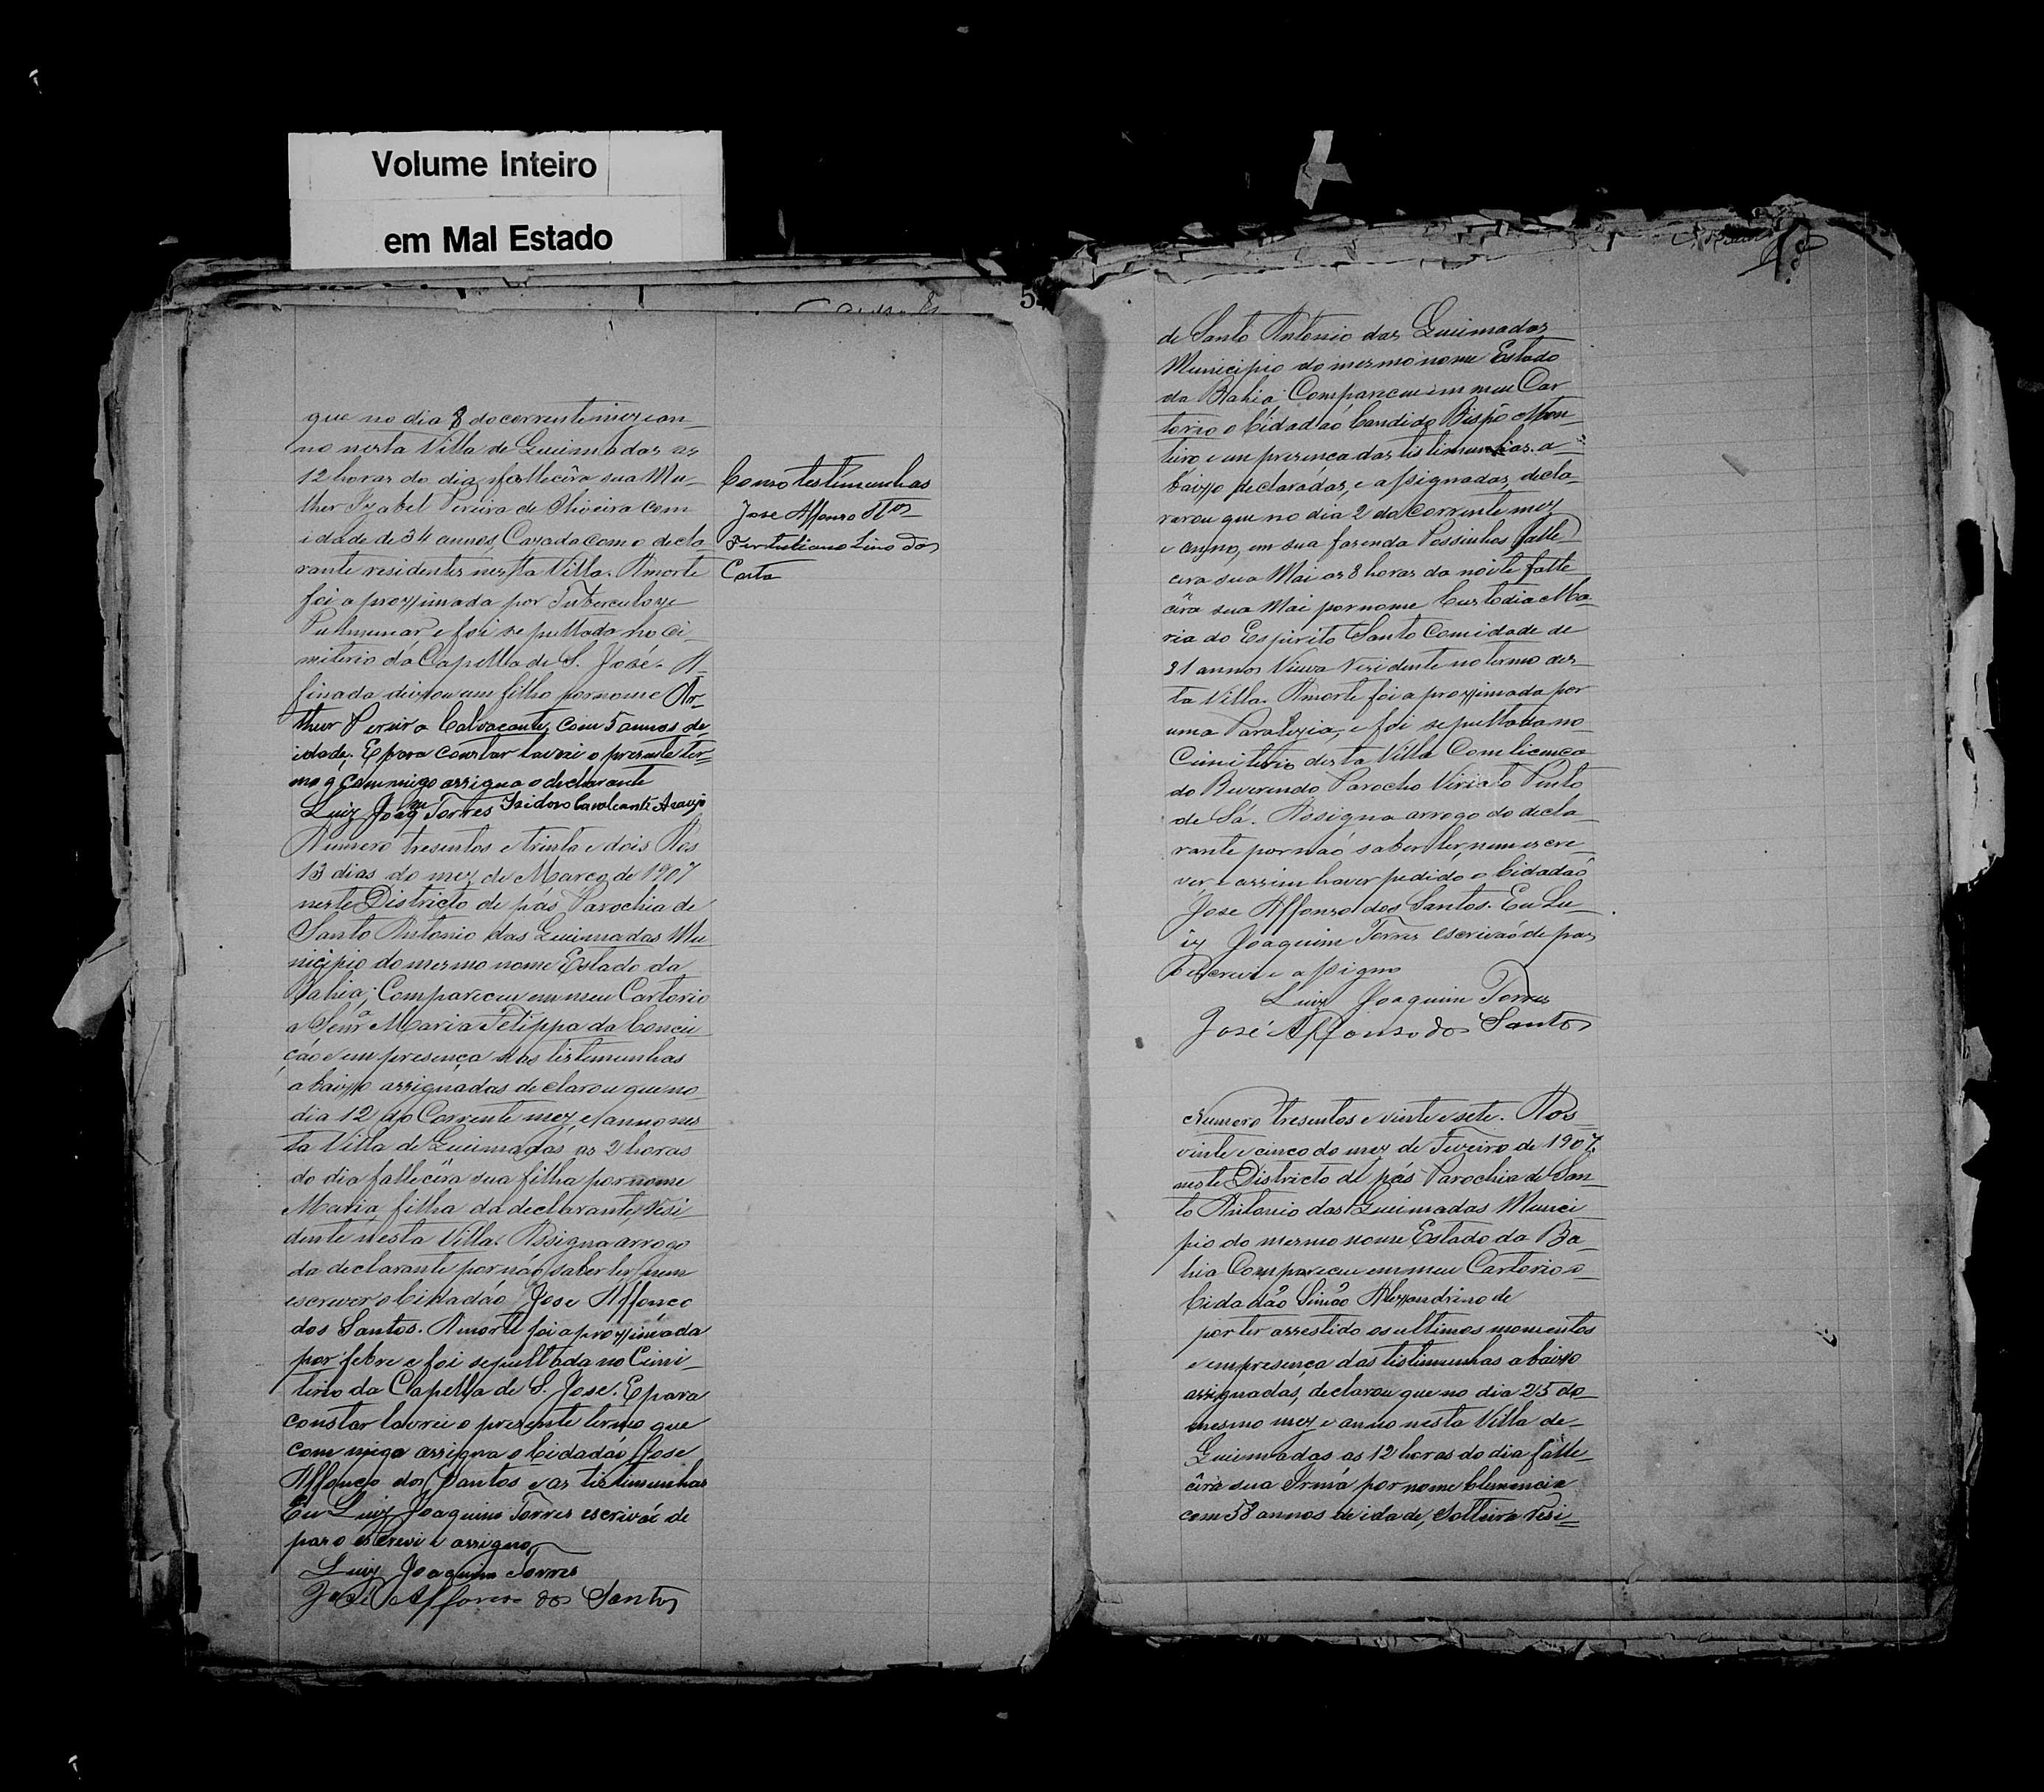 Volume Inteiro
em Mal Estado
5
que no dia 8 do corrente mez e an-
no nesta Villa de Queimadas as
12 horas do dia, fallecêra sua Mu-
lher Izabel Pereira de Oliveira com
idade de 34 annos, Cazada com o decla-
rante residentes nesta Villa. A morte
foi aproxximada por Tuberculoze
Pulmunar e foi sepultada no Ci-
miterio da Capella de S. José. A
finada deixou um filho por nome Ar-
thur Pereira Calvacante, com 5 annos de
idade. E para constar lavrei o presente ter-
mo q commigo assigna o declarante
Luiz Joaqm Torres Izidoro Cavalcante Araujo
Como testimunhas
Jose Affonso Stos
Tertuliano Lino da
Costa
Numero tresentos e trinta e dois Aos
13 dias do mez de Março de 1907
neste Districto de pás Parochia de
Santo Antonio das Queimadas Mu
nicipio do mesmo nome Estado da
Bahia; Compareceu em meu Cartorio
a Senrª Maria Felippa da Concei-
ção e em presença das testimunhas
abaixo assignadas declarou que no
dia 12 do Corrente mez, e anno nes-
ta Villa de Queimadas as 2 horas
do dia fallecêra sua filha por nome
Maria, filha da declarante, Resi-
dente nesta Villa. Assigna arrogo
da declarante por não saber ler, nem
escrever o Cidadão Jose Affonco
dos Santos. A morte foi aproxximada
por febre e foi sepultada no Cimi-
terio da Capella de S. Jose. E para
constar lavrei o presente termo que
commigo assigna o Cidadão Jose
Affonço dos Santos e as testimunhas
Eu Luiz Joaquim Torres escrivaõ de
pas o escrevi e assigno
Luiz Joaquim Torres
José Affonso dos Santos
de Santo Antonio das Queimadas
Municipio do mesmo nome Estado
da Bahia Compareceu em meu Car
torio o Cidadão Candido Bispo Mon-
teiro e em presença das testimunhas a-
baixo declaradas, e assignadas, decla-
rarou que no dia 2 do Corrente mez
e anno, em sua fazenda Possinhos falle
cera sua Mai as 8 horas da noite falle
cêra sua Mai por nome Custodia Ma-
ria do Espirito Santo Com idade de
81 annos Viuva Residente no termo des-
ta Villa. A morte foi aproxximada por
uma Paralezia, e foi sepultada no
Cimiterio desta Villa Com licença
do Reverendo Parocho Viriato Pinto
de Sá. Assigna arrogo do decla-
rante por não saber ler, nem escre-
ver, e assim haver pedido o Cidadaõ
Jose Affonso dos Santos. Eu Lu-
iz Joaquim Torres escrivaõ de pas
o escrevi e assigno
Luiz Joaquim Torres
José Affonso dos Santos
Numero tresentos e vinte e sete. Aos
vinte e cinco do mez de Fevreiro de 1907
neste Districto de pás Parochia de San-
to Antonio das Queimadas Munici
pio do mesmo nome Estado da Ba-
hia Compareceu em meu Cartorio o
Cidadão Simão Alexandrino de
por ter assestido os ultimos momentos
e em presença das testimunhas abaixo
assignadas, declarou que no dia 25 do
mesmo mez e anno nesta Villa de
Queimadas as 12 horas do dia falle-
cêra sua Irmá por nome Clemencia
com 58 annos de idade, Solteira Resi-